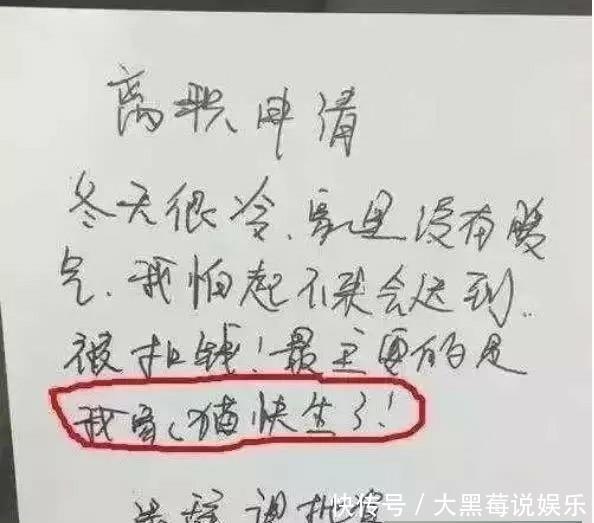 离职申请
冬天很冷、家里没有暖
气、我怕起不来会迟到..
被扣钱！最主要的是
我家、猫快生了！
快传号 / 大黑莓说娱乐